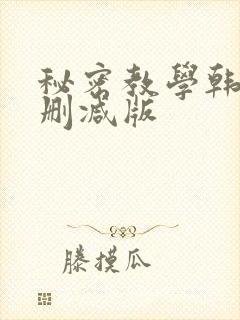 秘密教學韩
删减版
滕摸瓜